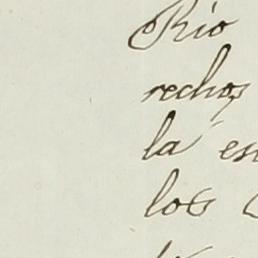 Rio
rechos
la es
los